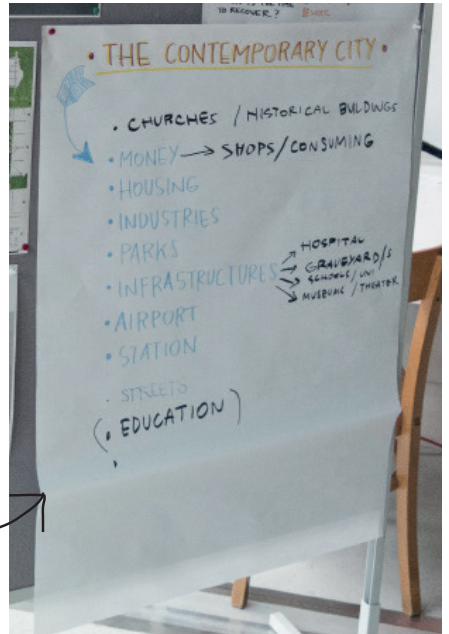 TO RECOVER?
• THE CONTEMPORARY CITY •
• CHURCHES / HISTORICAL BUILDINGS
• MONEY → SHOPS/CONSUMING
• HOUSING
• INDUSTRIES
• PARKS
• INFRASTRUCTURES
→ HOSPITAL
→ GRAVEYARD/S
→ SCHOOLS/UNI
→ MUSEUMS/THEATER
• AIRPORT
• STATION
• STREETS
(• EDUCATION)
•